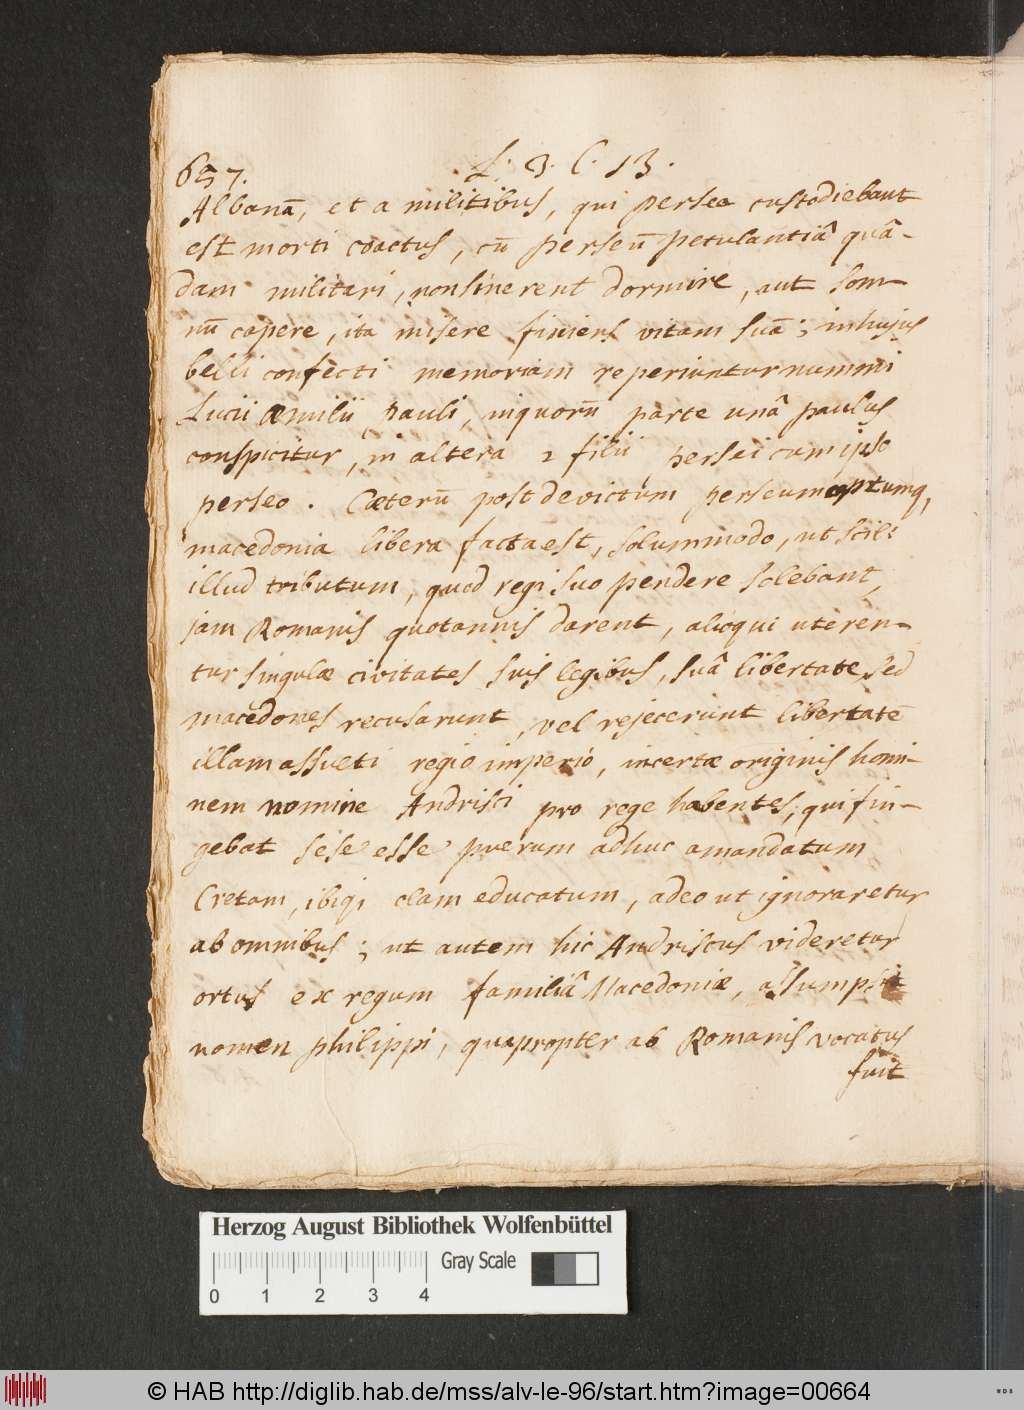 657.
L. 3. C. 13.
Albanā, et a militibus, qui persea custodiebant
est morti coactus, cū perseū petulantiâ quâ-
dam militari, non sinerent dormire, aut som-
nū capere, ita misere finiens vitam suā; in hujus
belli confecti memoriam reperiuntur nummi
Lucii Æmilii Pauli, in quorū parte unâ paulus
conspicitur, in altera 2 filii Persei cum ipso
perseo. Cæterū post devictum Perseum captumq,
macedonia libera facta est, solummodo, ut scil:
illud tributum, quod regi suo pendere solebant,
jam Romanis quotannis darent, alioqui uteren-
tur singulæ civitates suis legibus, suâ libertate, sed
macedones recusarunt, vel rejecerunt libertatē
illam assueti regio imperio, incertæ originis homi-
nem nomine Andrisci pro rege habentes; qui fin-
gebat sese esse puerum adhuc amandatum
Cretam, ibiqi clam educatum, adeo ut ignoraretur
ab omnibus; ut autem hic Andriscus videretur
ortus ex regum familiâ Macedoniæ, assumpsit
nomen philippi, quapropter ab Romanis vocatus
fuit
Herzog August Bibliothek Wolfenbüttel
Gray Scale
0 1 2 3 4
© HAB http://diglib.hab.de/mss/alv-le-96/start.htm?image=00664